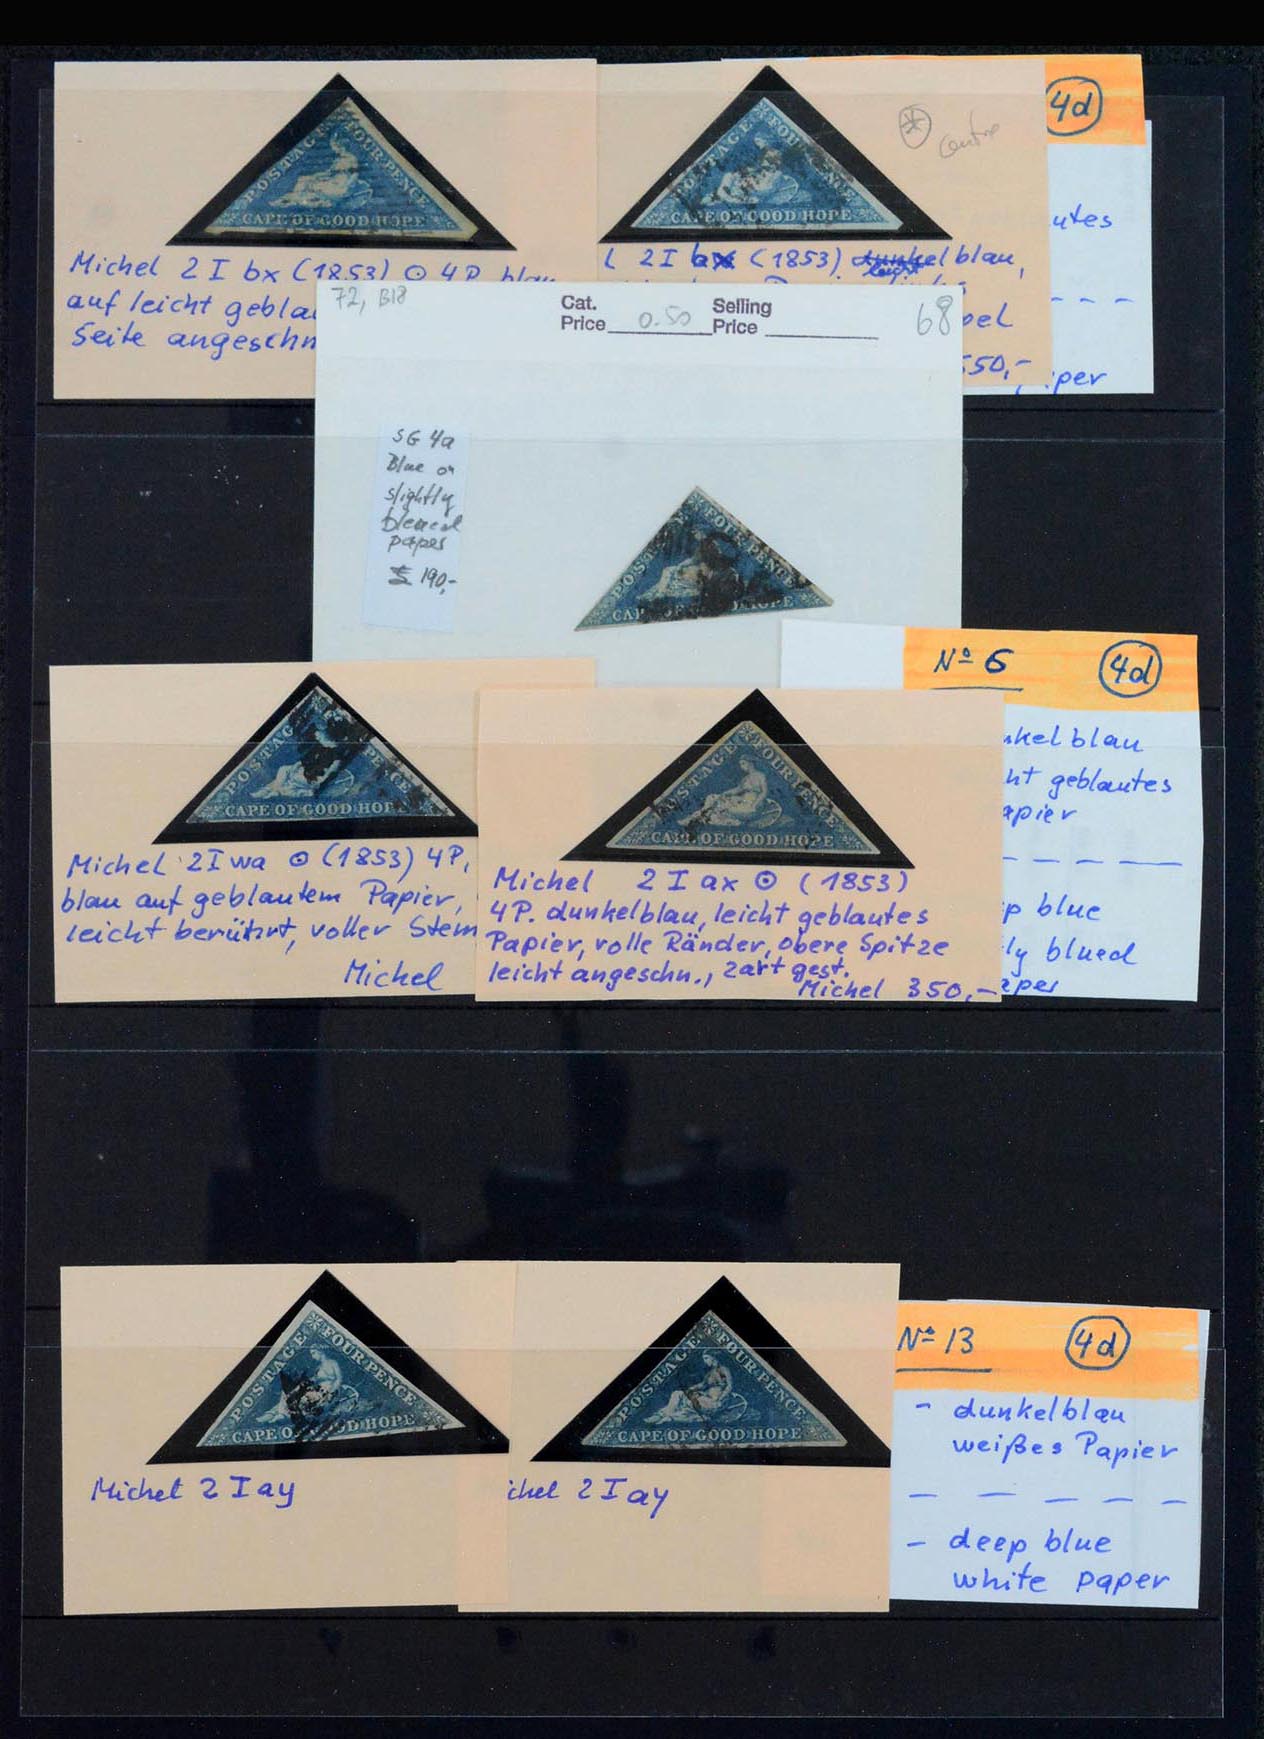 POSTAGE FOUR PENCE
CAPE OF GOOD HOPE
Michel 2 I bx (1853) ⊙ 4 P. blau
auf leicht gebla
Seite angeschn
POSTAGE FOUR PENCE
CAPE OF GOOD HOPE
centre
2 I bx (1853) dunkelblau,
leicht
pel
550,-
4d
utes
- - -
per
72, B18
Cat.
Price 0.50
Selling
Price
68
SG 4a
Blue on
slightly
blened
paper
£ 190,-
POSTAGE FOUR PENCE
CAPE OF GOOD HOPE
POSTAGE PENCE
CAPE OF GOOD HOPE
Michel 2 I wa ⊙ (1853) 4 P,
blau auf geblautem Papier,
leicht berührt, voller Stem
Michel
POSTAGE FOUR PENCE
CAPE OF GOOD HOPE
Michel 2 I ax ⊙ (1853)
4 P. dunkelblau, leicht geblautes
Papier, volle Ränder, obere Spitze
leicht angeschn., zart gest.
Michel 350,-
Nº 6 4d
nkelblau
ht geblautes
apier
- - - -
p blue
ly blued
aper
POSTAGE FOUR PENCE
CAPE OF GOOD HOPE
Michel 2 I ay
POSTAGE FOUR PENCE
CAPE OF GOOD HOPE
ichel 2 I ay
Nº 13 4d
- dunkelblau
weißes Papier
- - - - -
- deep blue
white paper